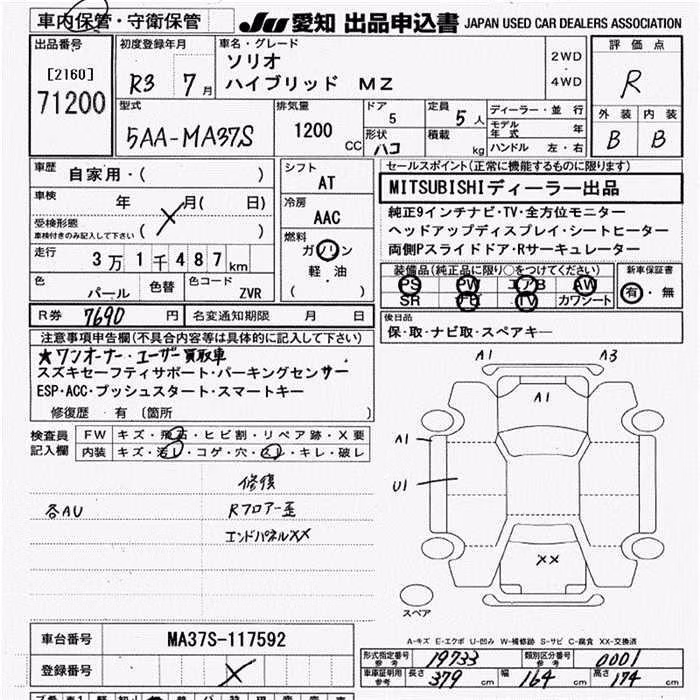 車内保管・守衛保管
JU 愛知 出品申込書 JAPAN USED CAR DEALERS ASSOCIATION
出品番号
[2160]
71200
初度登録年月
R3 7月
車名・グレード
ソリオ
ハイブリッド MZ
2WD
・
4WD
評価点
R
外装 内装
B B
型式
5AA-MA37S
排気量
1200
CC
ドア
5
形状
ハコ
定員
5人
積載
kg
ディーラー・並行
モデル年式 年
ハンドル 左・右
車歴
自家用・( )
車検
年 月( 日)
受検形態
車検付きのみ記入して下さい ( )
走行
3万1千487km
色
パール
色替
色コード
ZVR
シフト
AT
冷房
AAC
燃料
ガソリン
軽・油
( )
セールスポイント(正常に機能するものに限ります)
MITSUBISHIディーラー出品
純正9インチナビ・TV・全方位モニター
ヘッドアップディスプレイ・シートヒーター
両側Pスライドドア・Rサーキュレーター
装備品(純正品に限り○をつけてください)
PS PW エアB AW
SR ナビ TV カワシート
新車保証書
有・無
R券 7690 円 名変通知期限 月 日
後日品
保・取・ナビ取・スペアキー
注意事項申告欄(不具合内容等は具体的に記入して下さい)
★ワンオーナー・ユーザー買取車
スズキセーフティサポート・パーキングセンサー
ESP・ACC・プッシュスタート・スマートキー
修復歴・有(箇所 )
検査員
記入欄
FW キズ・飛石・ヒビ割・リペア跡・X要
内装 キズ・汚レ・コゲ・穴・スレ・キレ・破レ
修復
各AU
Rフロアー歪
エンドパネルXX
A1 A3
A1
A1
U1
XX
スペア
A-キズ E-エクボ U-凹み W-補修跡 S-サビ C-腐食 XX-交換済
車台番号 MA37S-117592
登録番号
形式指定番号 参考 19733 類別区分番号 参考 0001
車庫証明用 参考 長さ 379 cm 幅 164 cm 高さ 174 cm